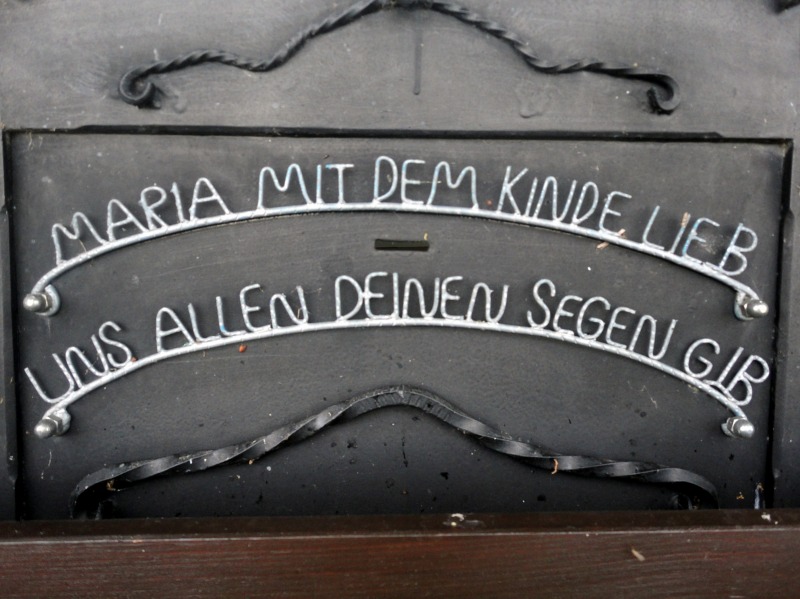 MARIA MIT DEM KINDE LIEB
UNS ALLEN DEINEN SEGEN GIB